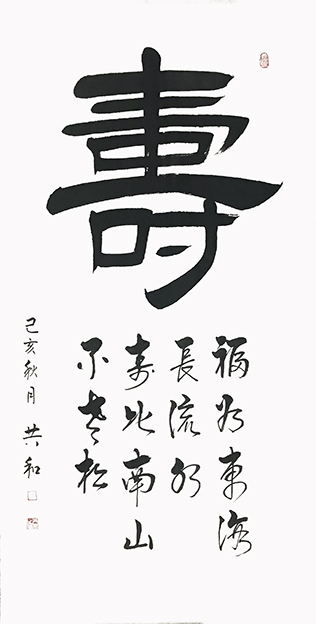 壽
福如東海
長流水
壽比南山
不老松
己亥秋月 共和